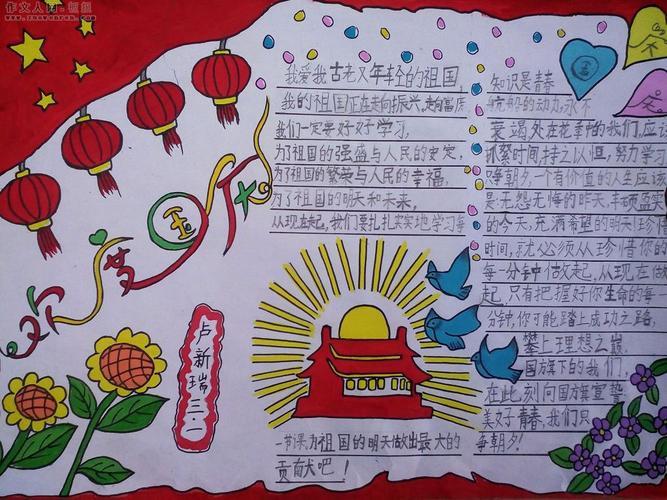 作文人网·恒组
www.zuowenren.com
欢度国庆
卢新瑞 三.
我爱我古老又年轻的祖国,
我的祖国正在走向振兴,走向富庶
我们一定要好好学习,
为了祖国的强盛与人民的安定,
为了祖国的繁荣与人民的幸福,
为了祖国的明天和未来,
从现在起,我们要扎扎实实地学习每
一节课,为祖国的明天做出最大的
贡献吧!
知识是青春
航船的动力永不
衰竭处在花季的我们,应
抓紧时间,持之以恒,努力学习
争朝夕一个有价值的人生应该
是无怨无悔的昨天,丰硕盈实
的今天,充满希望的明天!珍惜
时间,就必须从珍惜你的
每一分钟做起,从现在做
起,只有把握好你生命的每一
分钟,你可能踏上成功之路,
攀上理想之巅.
国旗下的我们,
在此刻向国旗宣誓
美好青春,我们只
争朝夕!